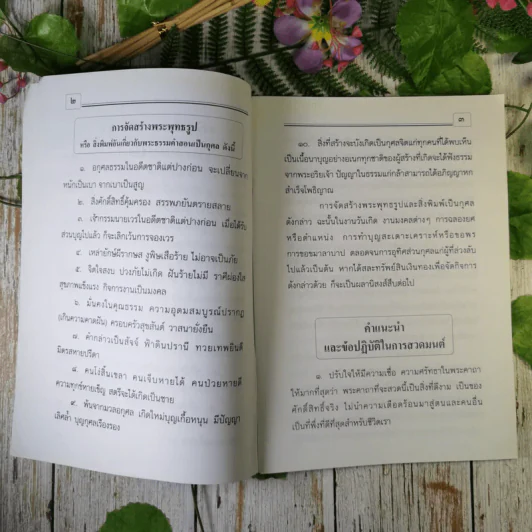 ๒
การจัดสร้างพระพุทธรูป
หรือ สิ่งพิมพ์อันเกี่ยวกับพระธรรมคำสอนเป็นกุศล ดังนี้
๑. อกุศลธรรมในอดีตชาติแต่ปางก่อน จะเปลี่ยนจาก
หนักเป็นเบา จากเบาเป็นสูญ
๒. สิ่งศักดิ์สิทธิ์คุ้มครอง สรรพภยันตรายสลาย
๓. เจ้ากรรมนายเวรในอดีตชาติแต่ปางก่อน เมื่อได้รับ
ส่วนบุญไปแล้ว ก็จะเลิกเว้นการจองเวร
๔. เหล่ายักษ์ผีรากษส งูพิษเสือร้าย ไม่อาจเป็นภัย
๕. จิตใจสงบ ปวงภัยไม่เกิด ฝันร้ายไม่มี ราศีผ่องใส
สุขภาพแข็งแรง กิจการงานเป็นมงคล
๖. มั่นคงในคุณธรรม ความอุดมสมบูรณ์ปรากฏ
(เกินความคาดฝัน) ครอบครัวสุขสันต์ วาสนายั่งยืน
๗. คำกล่าวเป็นสัจจ์ ฟ้าดินปรานี ทวยเทพยินดี
มิตรสหายปรีดา
๘. คนโง่สิ้นเขลา คนเจ็บหายได้ คนป่วยหายดี
ความทุกข์หายเข็ญ สตรีจะได้เกิดเป็นชาย
๙. พ้นจากมวลอกุศล เกิดใหม่บุญเกื้อหนุน มีปัญญา
เลิศล้ำ บุญกุศลเรืองรอง
๓
๑๐. สิ่งที่สร้างจะบังเกิดเป็นกุศลจิตแก่ทุกคนที่ได้พบเห็น
เป็นเนื้อนาบุญอย่างอเนกทุกชาติของผู้สร้างที่เกิดจะได้ฟังธรรม
จากพระอริยเจ้า ปัญญาในธรรมแก่กล้าสามารถได้อภิญญาหก
สำเร็จโพธิญาณ
การจัดสร้างพระพุทธรูปและสิ่งพิมพ์เป็นกุศล
ดังกล่าว ฉะนั้นในงานวันเกิด งานมงคลต่างๆ การฉลองยศ
หรือตำแหน่ง การทำบุญสะเดาะเคราะห์หรือขอพร
การขอขมาลาบาป ตลอดจนการอุทิศส่วนกุศลแก่ผู้ที่ล่วงลับ
ไปแล้วเป็นต้น หากได้สละทรัพย์สินเงินทองเพื่อจัดกิจการ
ดังกล่าวด้วย ก็จะเป็นผลานิสงส์สืบต่อไป
คำแนะนำ
และข้อปฏิบัติในการสวดมนต์
๑. ปรับใจให้มีความเชื่อ ความศรัทธาในพระคาถา
ให้มากที่สุดว่า พระคาถาที่จะสวดนี้เป็นสิ่งที่ดีงาม เป็นของ
ศักดิ์สิทธิ์จริง ไม่นำความเดือดร้อนมาสู่ตนและคนอื่น
เป็นที่พึ่งที่ดีที่สุดสำหรับชีวิตเรา